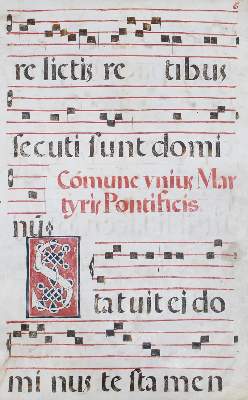 re lictis re tibus
secuti sunt domi
Cómune vnius Mar
tyris Pontificis.
nũ
Statuit ei do
mi nus te sta men